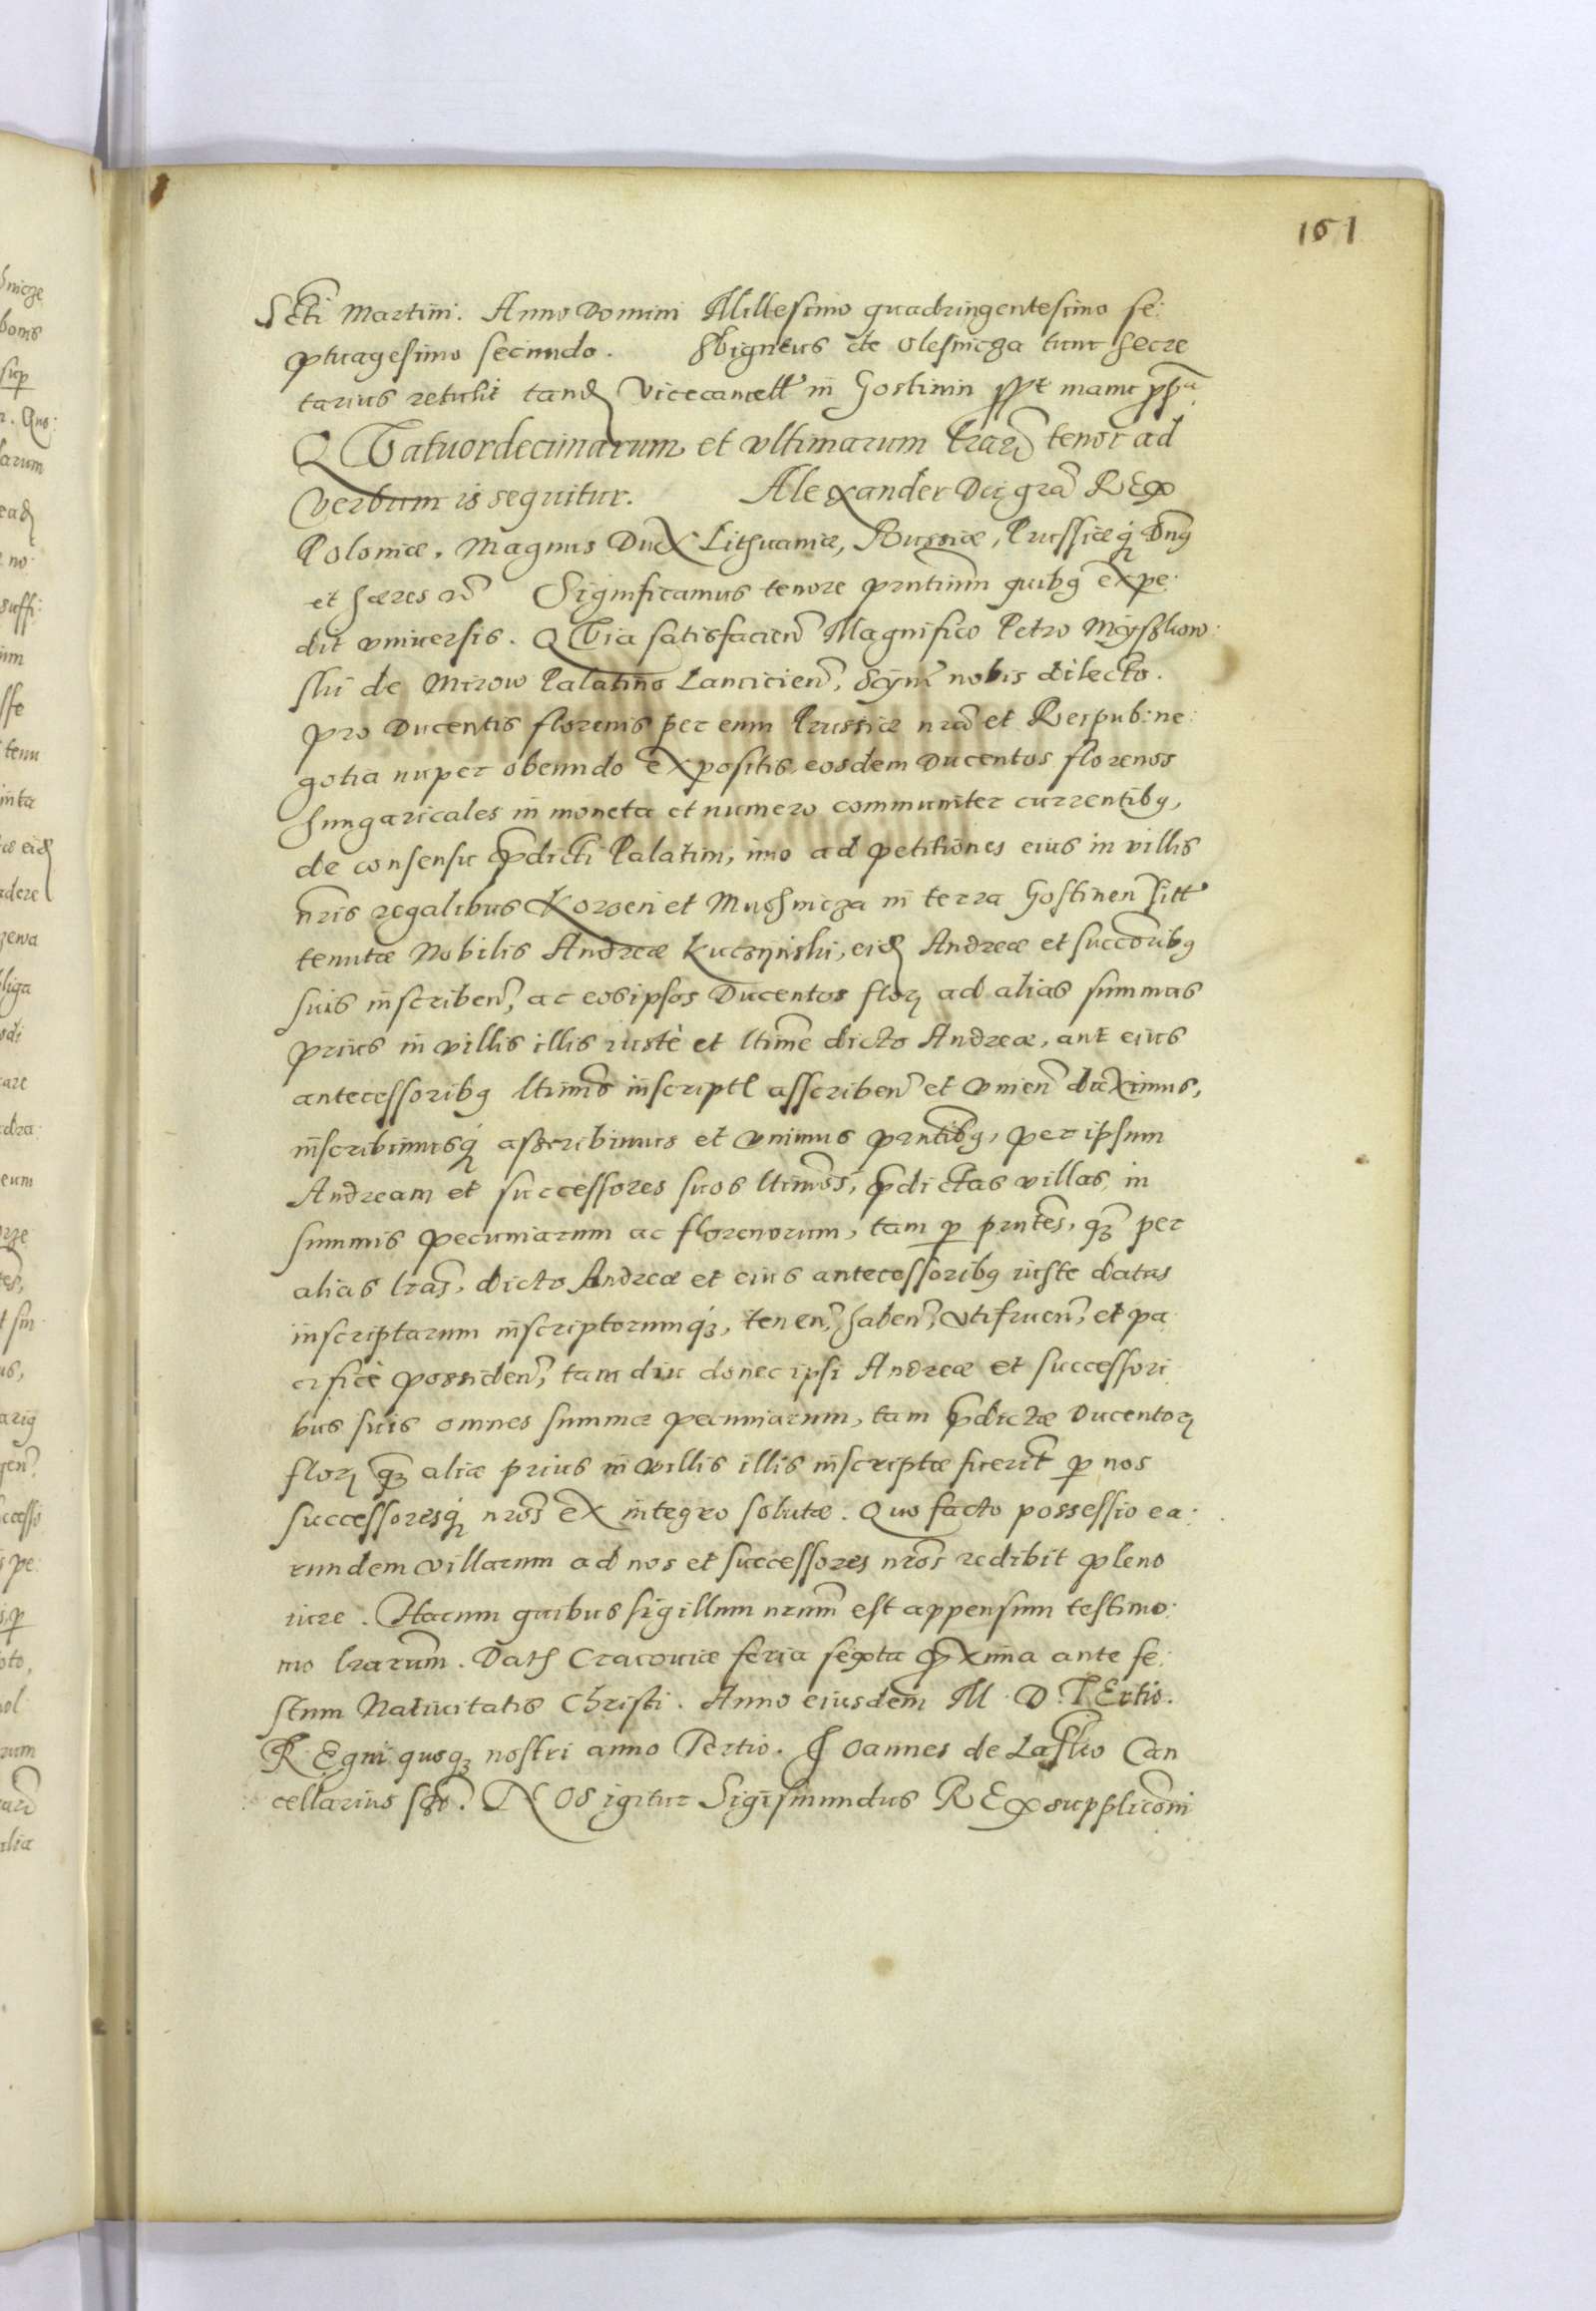 161
Scti Martini. Anno Domini Millesimo quadringentesimo se:
ptuagesimo secundo. Sbigneus de Olesnicza tunc Secre
tarius retulit tandē Vicecancell in Gostinin sspt manu ppa
QVatuordecimarum et ultimarum lrarū tenor ad
verbum is sequitur. Alexander Dei grā REx
Poloniæ, Magnus Dux Lithuaniæ, Russiæ, Prussiæq̃ Dn9
et hæres &c̃ Significamus tenore prntium quib9 expe:
dit universis. QVia satisfacien̄ Magnifico Petro Mÿszkow:
ski de Mirow Palatino Lancicien̄, sÿnr̄ nobis dilecto.
pro Ducentis florenis per eum Prussiæ nr̄a et Reipub: ne:
gotia nuper obeundo expositis, eosdem Ducentos florenos
hungaricales in moneta et numero communiter currentib9,
de consensu p̄dicti Palatini, imo ad petitiones eius in villis
nris regalibus Korzen et Muchnicza in terra Gostinen̄ sitt
tenutæ Nobilis Andreæ Kuczÿnski, eidē Andreæ et succorib9
suis inscriben̄, ac eosipsos Ducentos flor; ad alias summas
prius in villis illis iustè et ltime dicto Andreæ, aut eius
antecessorib9 ltimis inscriptl asscriben̄ et vnien̄ duximus,
inscribimusq̃ asscribimus et vnimus prntib9, per ipsum
Andream et successores suos ltimos, p̄dictas villas in
summis pecuniarum ac florenorum, tam p prntes, q̄3 per
alias lras, dicto Andreæ et eius antecessorib9 iuste datas
inscriptarum inscriptorumq3, tenen̄, haben̄, vtifruen̄, et pa:
cificè possiden̄, tam diu donec ipsi Andreæ et successori
bus suis omnes summæ pecuniarum, tam p̄dictæ Ducentor;
flor; q̄3 aliæ prius in villis illis inscriptæ fuerit p nos
successoresq̃ nros ex integro solutæ. Quo facto possessio ea:
rundem villarum ad nos et successores nros redibit pleno
iure. Harum quibus sigillum nrum est appensum testimo:
nio lrarum. Dat Cracoviæ feria sexta p̄xima ante fe:
stum Nativitatis Christi. Anno eiusdem M. D. TErtio.
REgni quoq3 nostri anno Tertio. Joannes de Lasko Can
cellarius sst. NOs igitur Sigismundus REx supplicōni